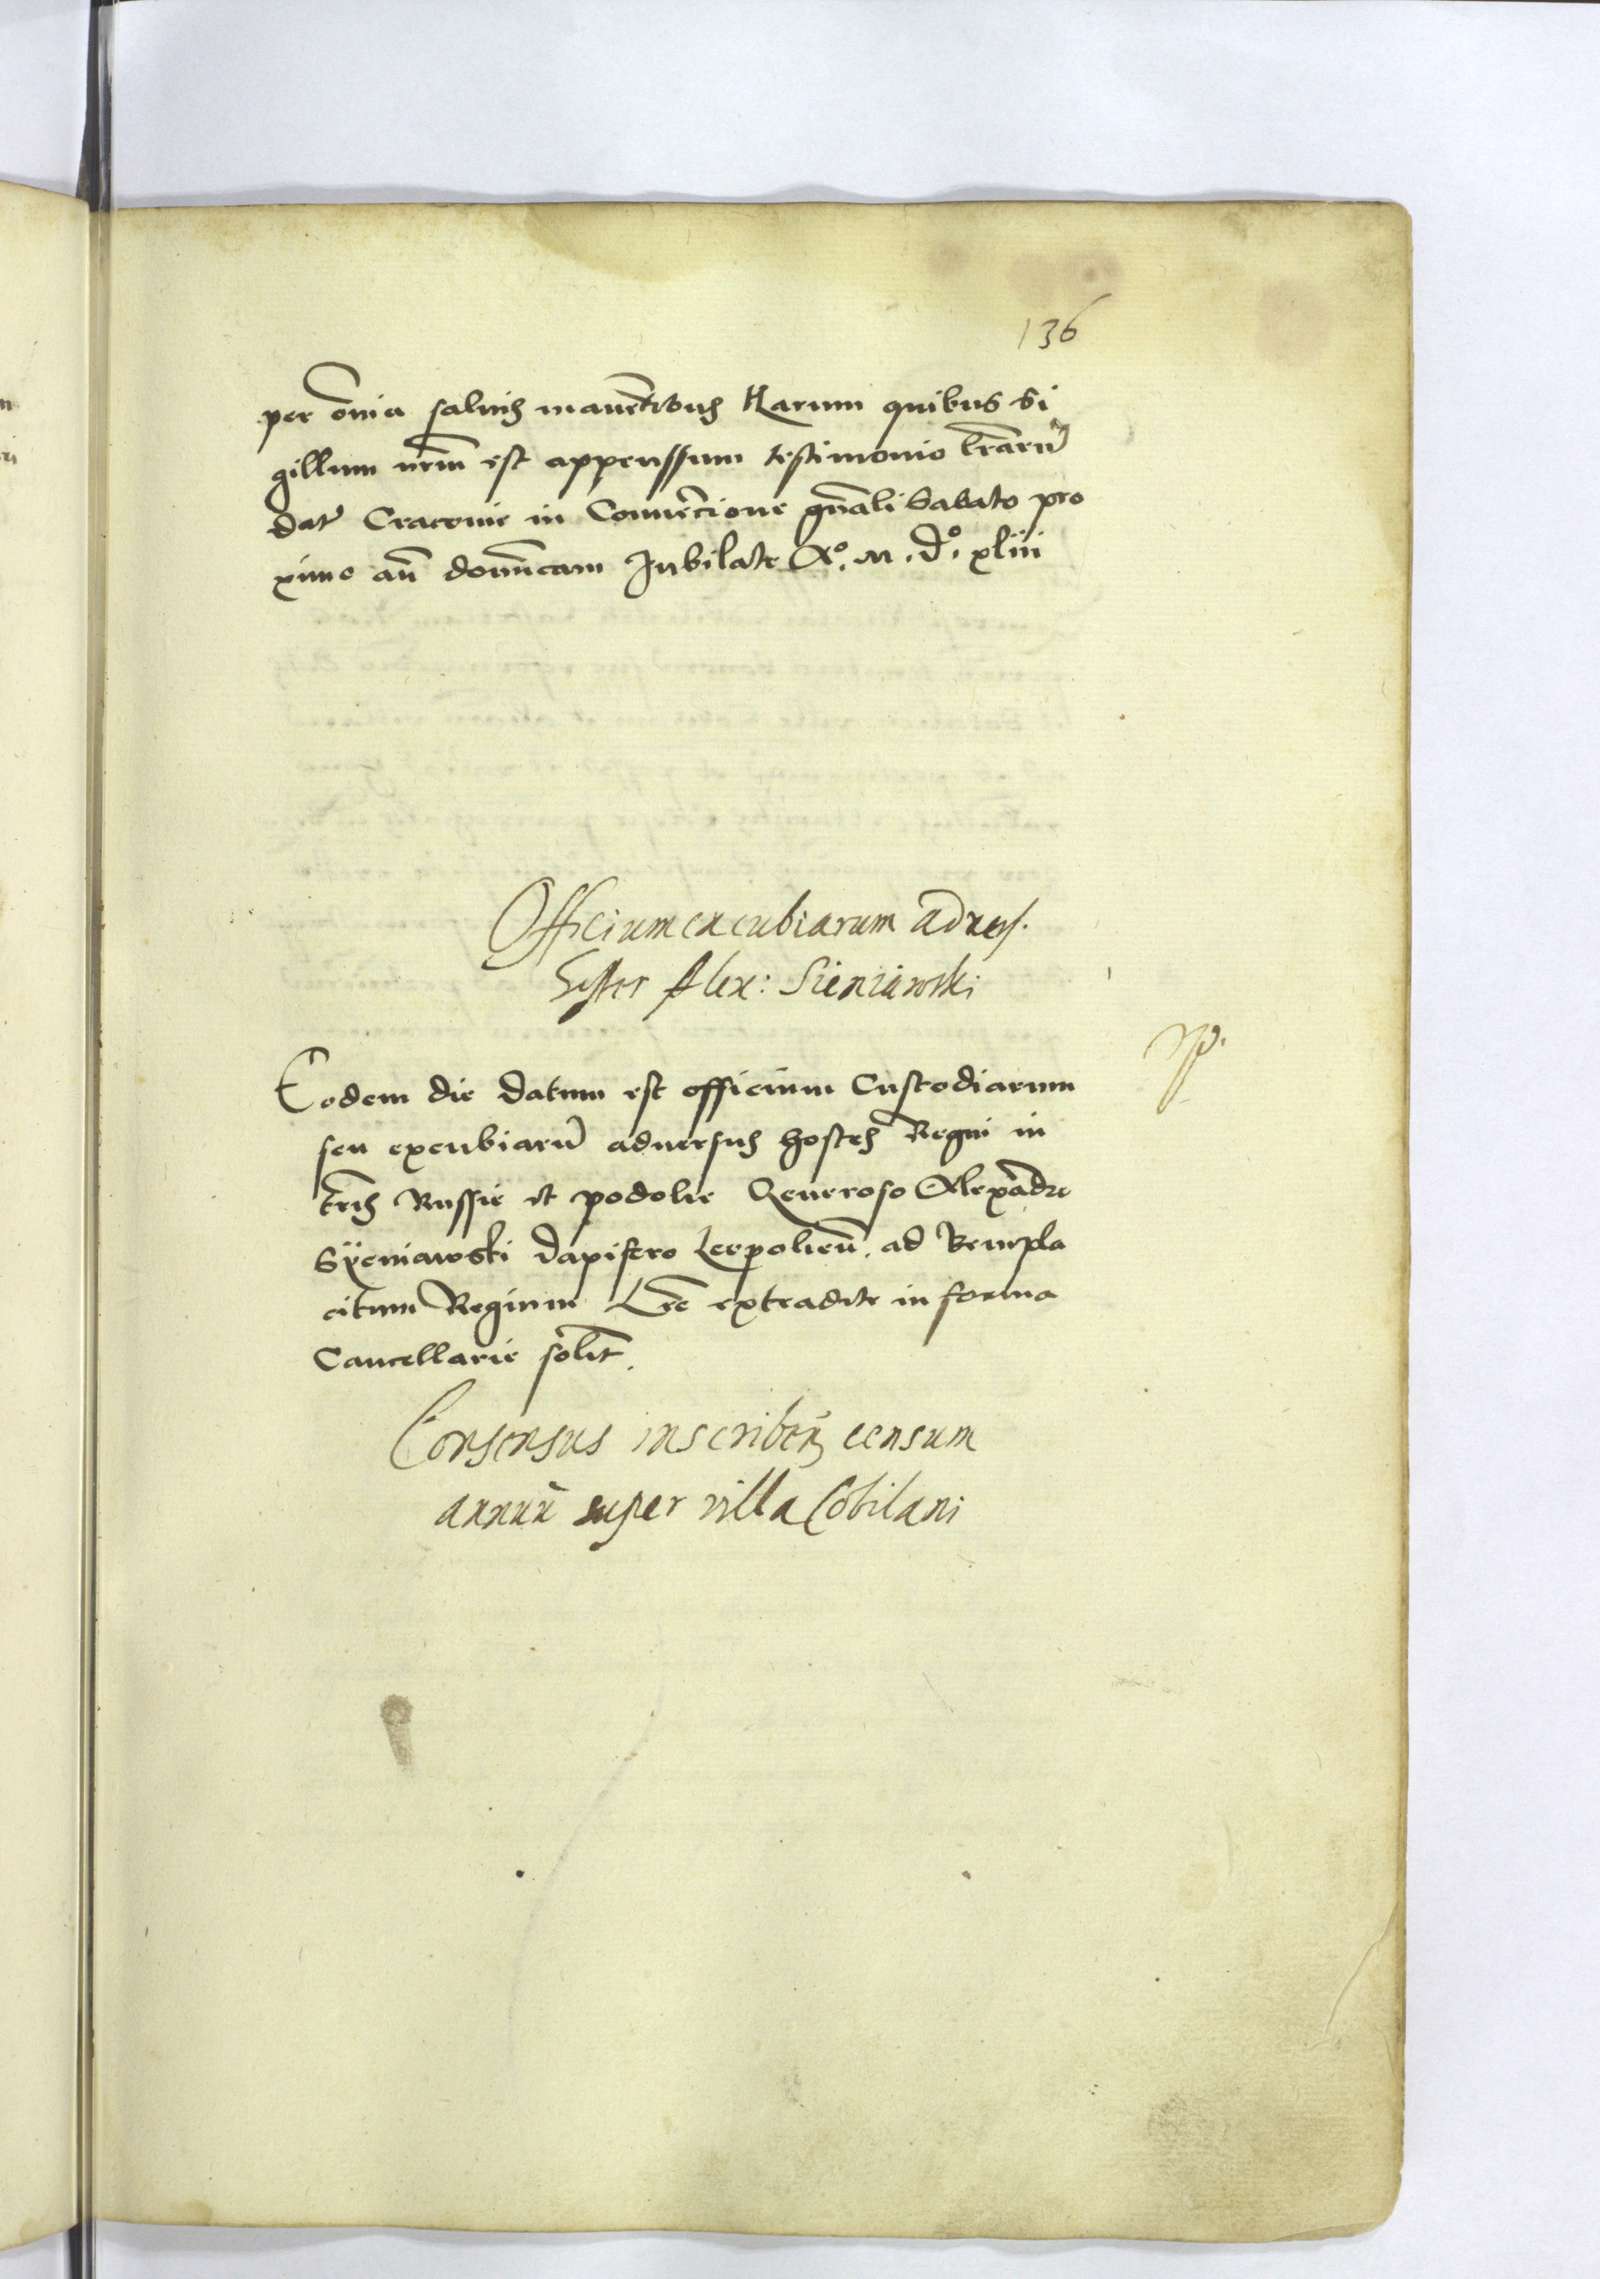 136
per om̄ia saluis manen̄tibus Harum quibus Si
gillum nr̄m est appenssum testimonio lr̄arū
dat Cracovie in Conuen̄cione gn̄ali Sabato pro
ximo an̄ domīnicam Jubilate Aº. M. Dº. xliii
Officium excubiarum aduers.
hostes Alex: Sieniawski
Eodem die datum est officium Custodiarum
seu excubiarū aduersus hostes Regni in
tr̄is Russie et podolie Generoso Alexādro
Syeniawski dapifero Leopolien̄. ad Benepla
citum Regium Lr̄e extradite in forma
Cancellarie solit.
Consensus inscriben̄ censum
annuū super villa Cobilani